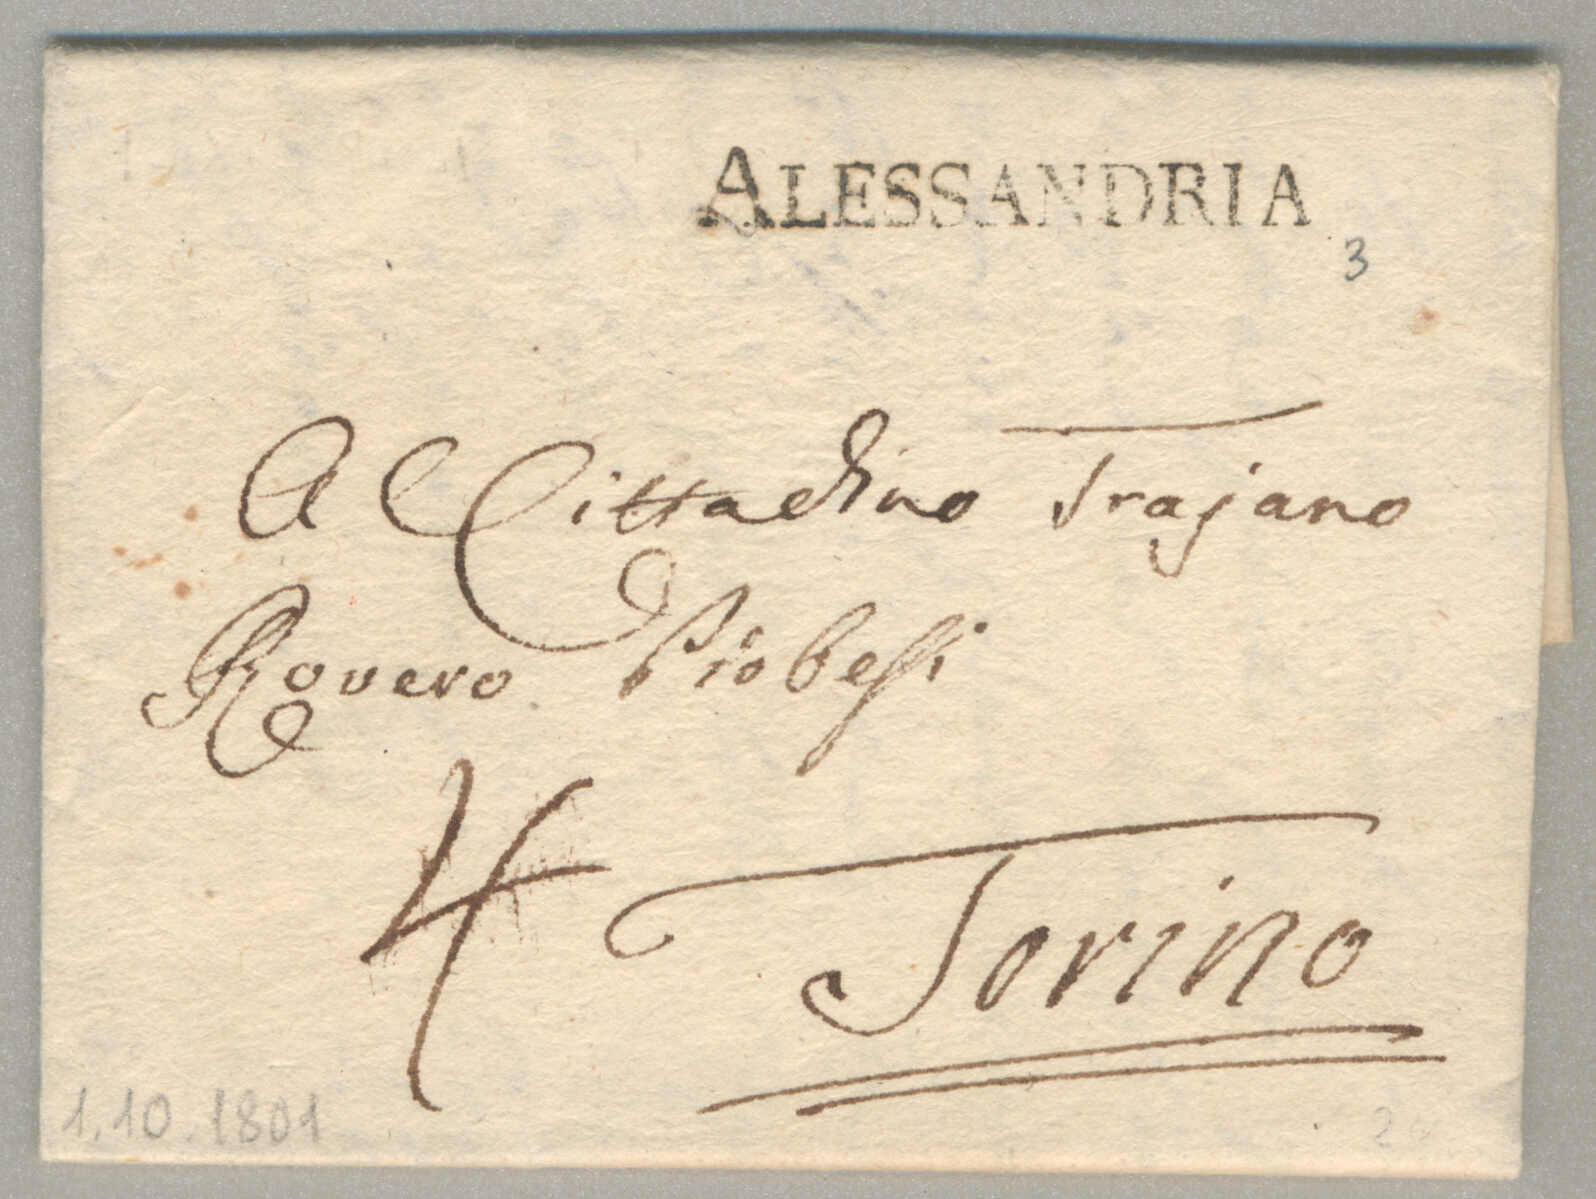 ALESSANDRIA
3
Al Cittadino Trajano
Rovero Piobesi
4
Torino
1.10.1801